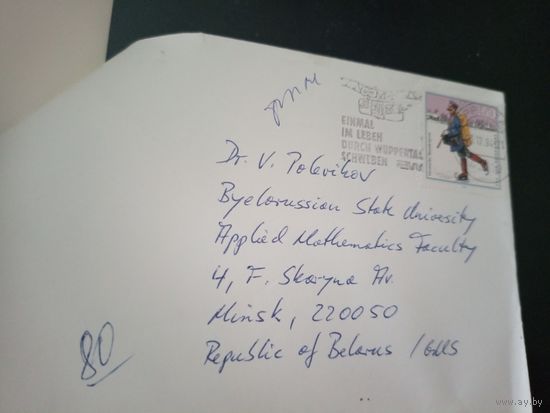 EINMAL
IM LEBEN
DURCH WUPPERTAL
SCHWEBEN
Dr. V. Polevikov
Byelorussian State University
Applied Mathematics Faculty
4, F. Skaryna Av.
Minsk, 220050
Republic of Belarus /
80
www.ay.by